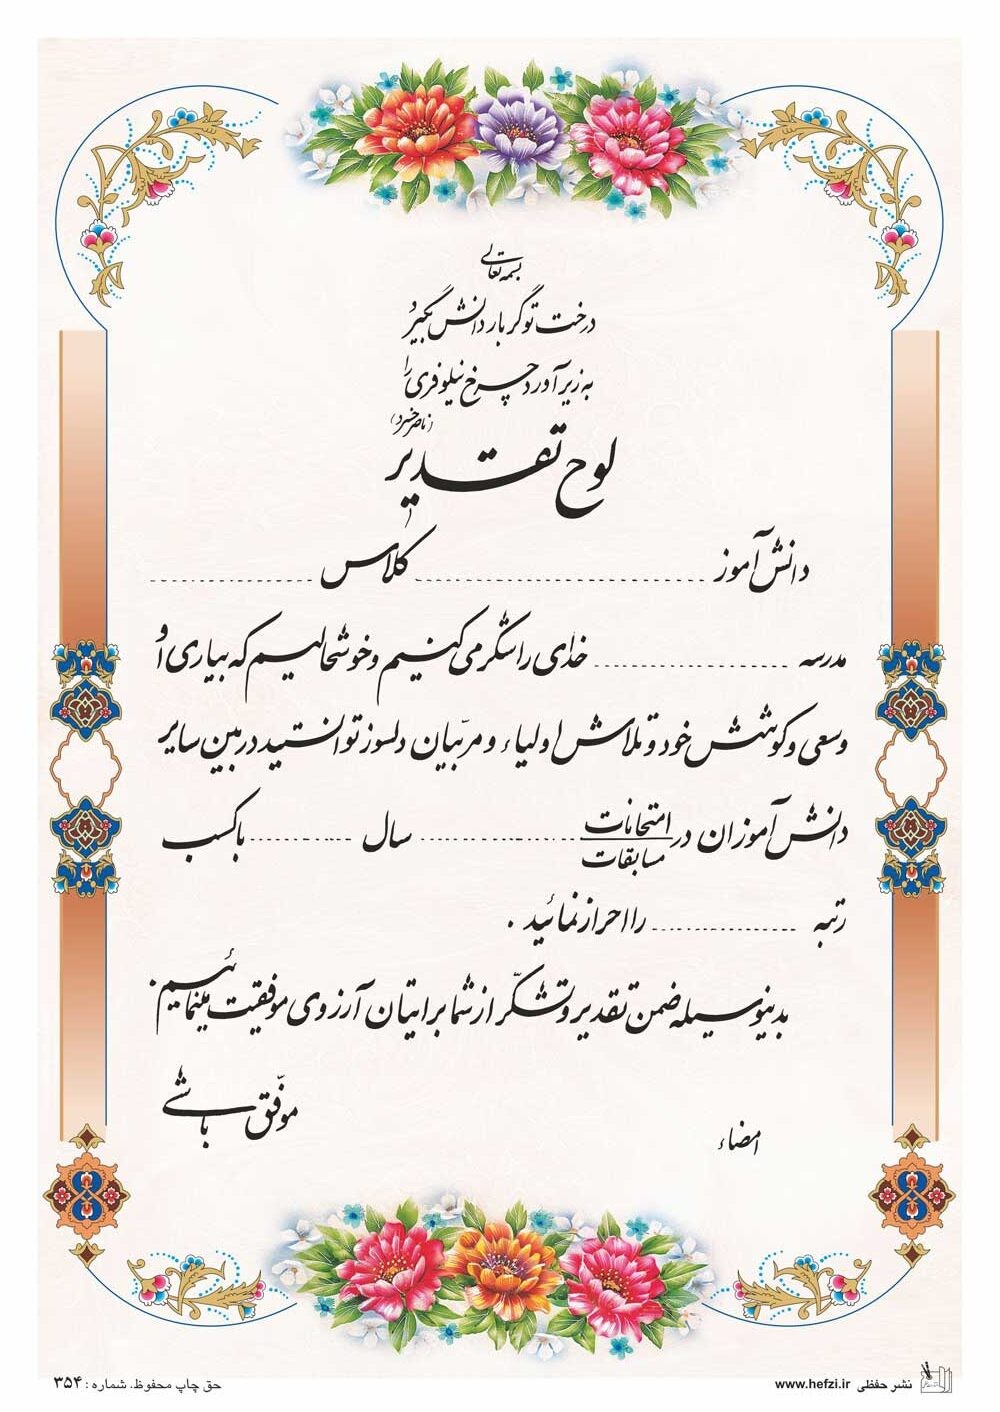 بسمه تعالی
درخت تو گر بار دانش بگیرد
به زیر آورد چرخ نیلوفری را
(ناصر خسرو)
لوح تقدیر
دانش آموز ........................ کلاس ................
مدرسه .................... خدای را شکر می کنیم و خوشحالیم که بیاری او
و سعی و کوشش خود و تلاش اولیاء و مربّیان دلسوز توانستید در بین سایر
دانش آموزان در امتحانات ................ سال ............ با کسب
مسابقات
رتبه ................ را احراز نمائید .
بدینوسیله ضمن تقدیر و تشکّر از شما برایتان آرزوی موفقیت مینمائیم.
موفّق باشی
امضاء
نشر حفظی www.hefzi.ir
حق چاپ محفوظ. شماره : ۳۵۴